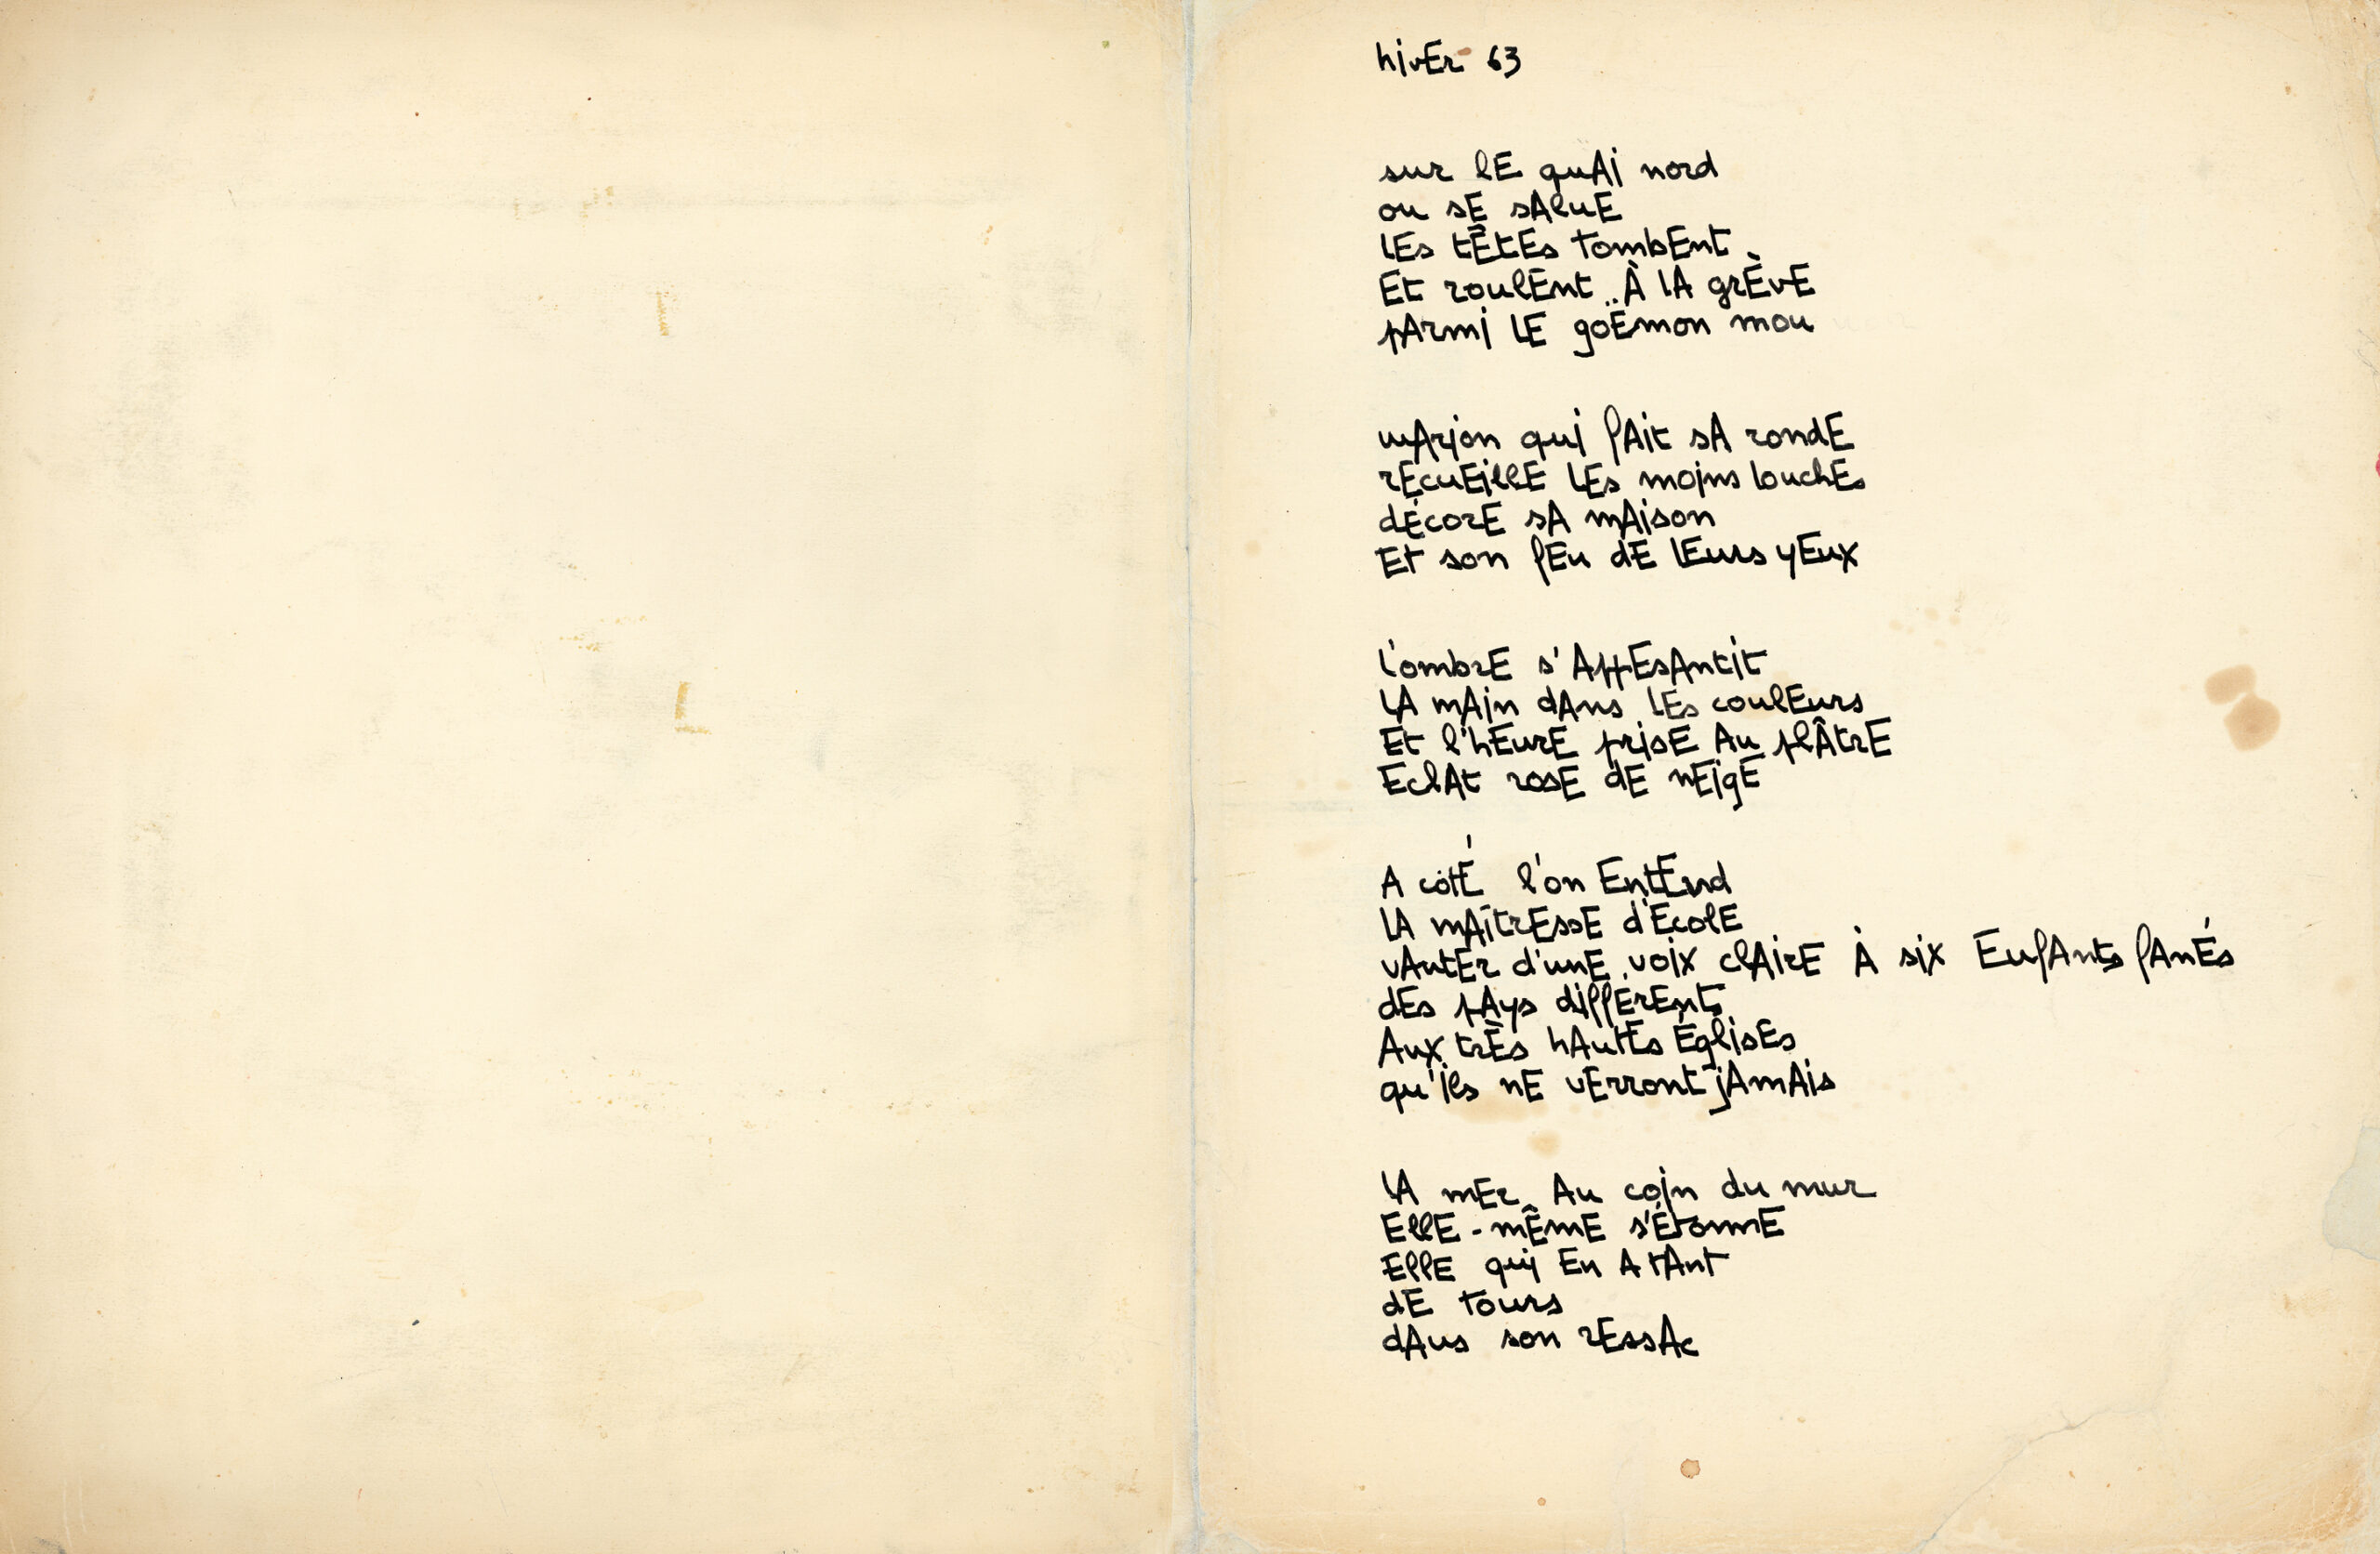 hiver 63
sur le quai nord
on se salue
les têtes tombent
et roulent à la grève
parmi le goëmon mou
marion qui fait sa ronde
recueille les moins louches
décore sa maison
et son feu de leurs yeux
l'ombre s'appesantit
la main dans les couleurs
et l'heure prise au plâtre
éclat rose de neige
A côté l'on entend
la maîtresse d'école
vanter d'une voix claire à six enfants fanés
des pays différents
aux très hautes églises
qu'ils ne verront jamais
la mer au coin du mur
elle-même s'étonne
elle qui en a tant
de tours
dans son ressac